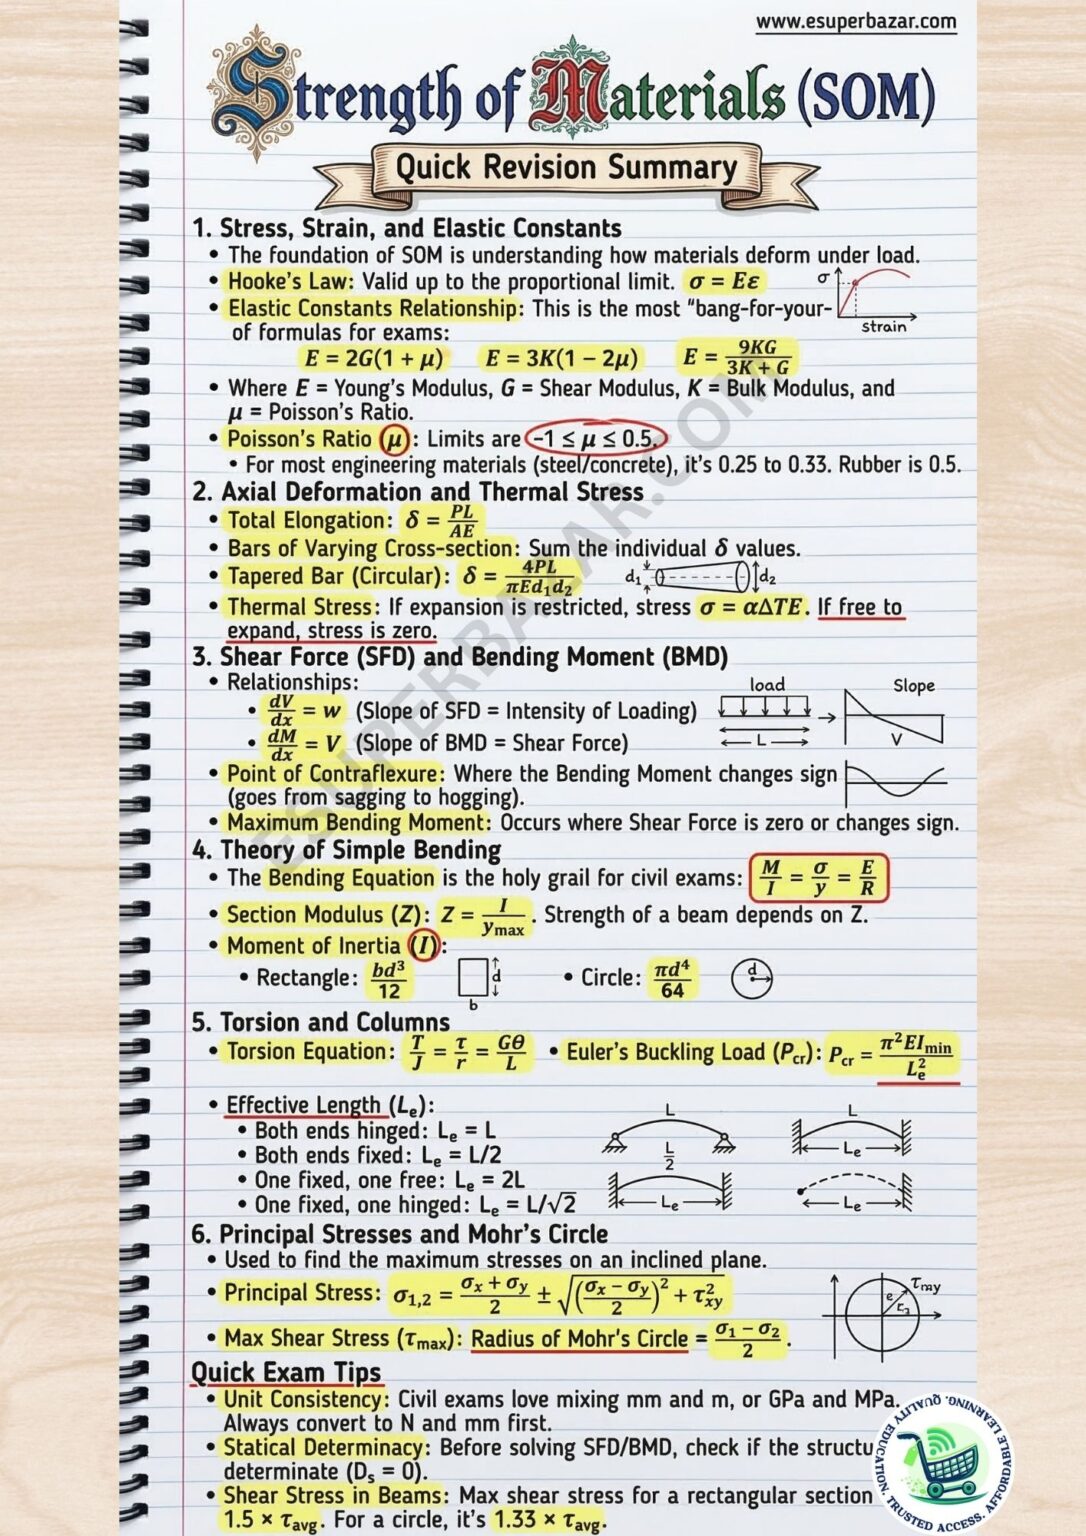 www.esuperbazar.com
Strength of Materials (SOM)
Quick Revision Summary
1. Stress, Strain, and Elastic Constants
• The foundation of SOM is understanding how materials deform under load.
• Hooke's Law: Valid up to the proportional limit. σ = Eε
σ
strain
• Elastic Constants Relationship: This is the most "bang-for-your-
of formulas for exams:
E = 2G(1 + μ) E = 3K(1 − 2μ) E = 9KG/(3K + G)
• Where E = Young's Modulus, G = Shear Modulus, K = Bulk Modulus, and
μ = Poisson's Ratio.
• Poisson's Ratio (μ): Limits are −1 ≤ μ ≤ 0.5.
• For most engineering materials (steel/concrete), it's 0.25 to 0.33. Rubber is 0.5.
2. Axial Deformation and Thermal Stress
• Total Elongation: δ = PL/AE
• Bars of Varying Cross-section: Sum the individual δ values.
• Tapered Bar (Circular): δ = 4PL/(πEd₁d₂)
d₁ d₂
• Thermal Stress: If expansion is restricted, stress σ = αΔTE. If free to
expand, stress is zero.
3. Shear Force (SFD) and Bending Moment (BMD)
• Relationships:
• dV/dx = w (Slope of SFD = Intensity of Loading)
• dM/dx = V (Slope of BMD = Shear Force)
load Slope
L V
• Point of Contraflexure: Where the Bending Moment changes sign
(goes from sagging to hogging).
• Maximum Bending Moment: Occurs where Shear Force is zero or changes sign.
4. Theory of Simple Bending
• The Bending Equation is the holy grail for civil exams: M/I = σ/y = E/R
• Section Modulus (Z): Z = I/ymax. Strength of a beam depends on Z.
• Moment of Inertia (I):
• Rectangle: bd³/12 d b • Circle: πd⁴/64 d
5. Torsion and Columns
• Torsion Equation: T/J = τ/r = Gθ/L • Euler's Buckling Load (Pcr): Pcr = π²EImin/Le²
• Effective Length (Le):
• Both ends hinged: Le = L
• Both ends fixed: Le = L/2
• One fixed, one free: Le = 2L
• One fixed, one hinged: Le = L/√2
L L
L/2 Le
Le Le
6. Principal Stresses and Mohr's Circle
• Used to find the maximum stresses on an inclined plane.
• Principal Stress: σ1,2 = (σx + σy)/2 ± √(((σx − σy)/2)² + τxy²)
• Max Shear Stress (τmax): Radius of Mohr's Circle = (σ1 − σ2)/2.
Quick Exam Tips
• Unit Consistency: Civil exams love mixing mm and m, or GPa and MPa.
Always convert to N and mm first.
• Statical Determinacy: Before solving SFD/BMD, check if the structu
determinate (Ds = 0).
• Shear Stress in Beams: Max shear stress for a rectangular section
1.5 × τavg. For a circle, it's 1.33 × τavg.
ESUPERBAZAR.COM
QUALITY EDUCATION. TRUSTED ACCESS. AFFORDABLE LEARNING.